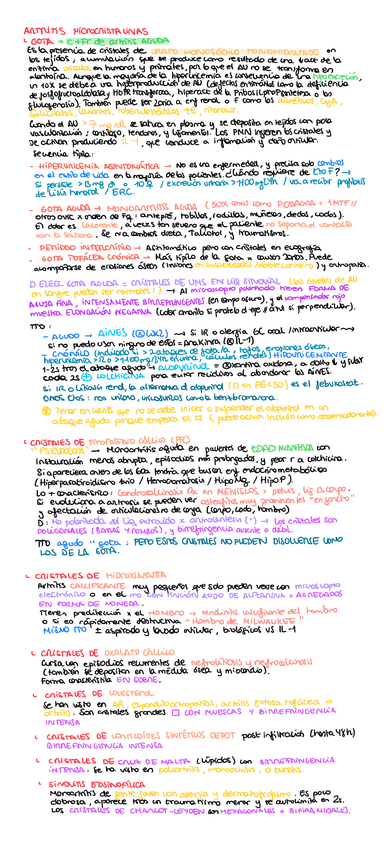 ARTRITIS MICROCRISTALINAS
GOTA → + Fr de artritis AGUDA
Es la presencia de cristales de URATO MONOSÓDICO MONOHIDRATADO en
los tejidos, acumulación que se produce como resultado de una falta de la
enzima uricasa en humanos y primates, por lo que el AU no se transforma en
alantoína. Aunque la mayoría de la hiperuricemia es consecuencia de una hipoexcreción,
un 10% se deberá a una hiperproducción de AU (defectos enzimáticos como la deficiencia
de
glucógeno). También puede ser 2aria a enf renal o f como los diuréticos, CyA,
salicilatos,
Cuando el AU > 7 se satura en plasma y se deposita en tejidos con poca
vascularización: cartílago, tendones, y ligamentos. Los PMN ingieren los cristales y
se activan produciendo IL-1, que conduce a inflamación y daño tisular.
Secuencia típica:
- HIPERURICEMIA ASINTOMÁTICA → No es una enfermedad, y precisa solo cambios
en el estilo de vida en la mayoría de los pacientes. ¿Cuándo requiere de tto F? →
Si persiste > 13 mg ♂ o 10 ♀ / excreción urinaria > 1100 mg/24h / va a recibir profilaxis
de lisis tumoral / ERC.
- GOTA AGUDA → MONOARTRITIS AGUDA (50% casos como PODAGRA = 1ª MTF //
otros sitios x orden de Fq: antepié, tobillos, rodillas, muñecas, dedos, codos).
El dolor es lacerante, a veces tan severo que el paciente no soporta el contacto
con la sábana.
- PERIODO INTERCRÍTICO → Asintomático pero con cristales en ecografía
- GOTA TOFÁCEA CRÓNICA → Más típico de la gota x causas 2arias. Puede
acompañarse de erosiones óseas
D ELEC GOTA AGUDA = CRISTALES DE UMS EN LIQ SINOVIAL (los niveles de AU
en sangre pueden ser normales!) → Al microscopio polarizado tienen FORMA DE
AGUJA FINA, INTENSAMENTE BIRREFRINGENTES (en campo oscuro), y al compensador rojo
muestra ELONGACIÓN NEGATIVA
TTO:
- AGUDO → AINES → Si IR o alergia GC oral / intraarticular →
si no puedo usar ninguno de estos = anakinra (IL-1)
- CRÓNICO
1-2s tras el ataque agudo → ALOPURINOL
cada 2s COLCHICINA para evitar recidivas al abandonar los AINES.
Si IR o litiasis renal, la alternativa al alopurinol es el febuxostat.
OTROS TTOS:
Tener en cuenta que no se debe iniciar o suspender el alopurinol en un
ataque agudo porque empeora el
CRISTALES DE PIROFOSFATO CÁLCICO (PFC)
"PSEUDOGOTA" → Monoartritis aguda en pacientes de EDAD AVANZADA con
instauración menos abrupta, episodios más prolongados, y peor r a colchicina.
Si apareciera antes de los 60a habría que buscar enf endocrinometabólica
(Hiperparatiroidismo 1ario / Hemocromatosis / HipoMg / HipoP).
Lo + característico: Condrocalcinosis Rx EN MENISCOS + pelvis, lig Δ carpo.
Si evoluciona a artrosis se pueden ver osteofitos muy prominentes "en gancho"
y afectación de articulaciones no de carga (carpo, codo, hombro)
POLIGONALES (BARRAS Y ROMBOS), y birrefringencia ausente o débil.
TTO agudo "gota; PERO ESTOS CRISTALES NO PUEDEN DISOLVERSE COMO
LOS DE LA GOTA.
CRISTALES DE HIDROXIAPATITA
Artritis CALCIFICANTE muy pequeños que solo pueden verse con microscopio
electrónico o en el mo con TINCIÓN ROJO DE ALIZARINA = AGREGADOS
EN FORMA DE MONEDA.
Tienen predilección x el HOMBRO → tendinitis calcificante del hombro
o si es rápidamente destructiva "Hombro de MILWAUKEE"
MISMO TTO ± aspirado y lavado articular, biológicos vs IL-1
CRISTALES DE OXALATO CÁLCICO
Cursa con episodios recurrentes de nefrolitiasis y nefrocalcinosis
(también se depositan en la médula ósea y miocardio).
Forma característica EN SOBRE.
CRISTALES DE COLESTEROL
Se han visto en AR, espondiloartropatías, artritis gotosa tofácea o
artrosis. Son cristales grandes □ CON MUESCAS Y BIRREFRINGENCIA
INTENSA
CRISTALES DE CORTICOIDES SINTÉTICOS DEPOT post infiltración (hasta 48h)
BIRREFRINGENCIA INTENSA
CRISTALES DE CRUZ DE MALTA (Lípidos) con BIRREFRINGENCIA
INTENSA. Se ha visto en poliartritis, monoartritis o bursitis.
SINOVITIS EOSINOFÍLICA
Monoartritis de gente joven con alergia y dermatografismo. Es poco
dolorosa, aparece tras un traumatismo menor y se autolimita en 2s.
Los CRISTALES DE CHARCOT-LEYDEN son HEXAGONALES o BIPIRAMIDALES.